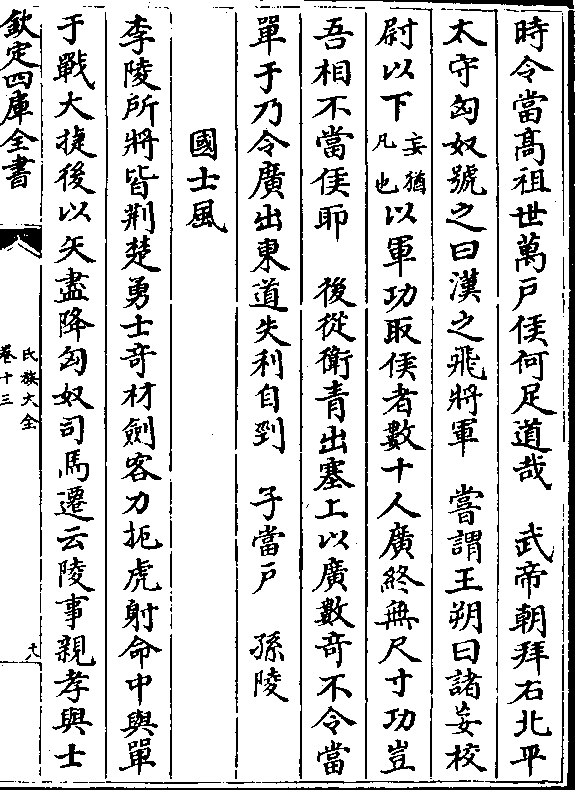 時令當髙祖世萬戸侯何足道哉　武帝朝拜右北平
太守匈奴號之曰漢之飛將軍　嘗謂王朔曰諸妄校
尉以下妄猶凡也以軍功取侯者數十人廣終無尺寸功豈
吾相不當侯耶　後從衛青出塞上以廣數竒不令當
單于乃令廣出東道失利自剄　子當戸　孫陵
國士風
李陵所將皆荆楚勇士竒材劍客力扼虎射命中與單
于戰大捷後以矢盡降匈奴司馬遷云陵事親孝與士
欽定四庫全書
氏族大全
卷十三